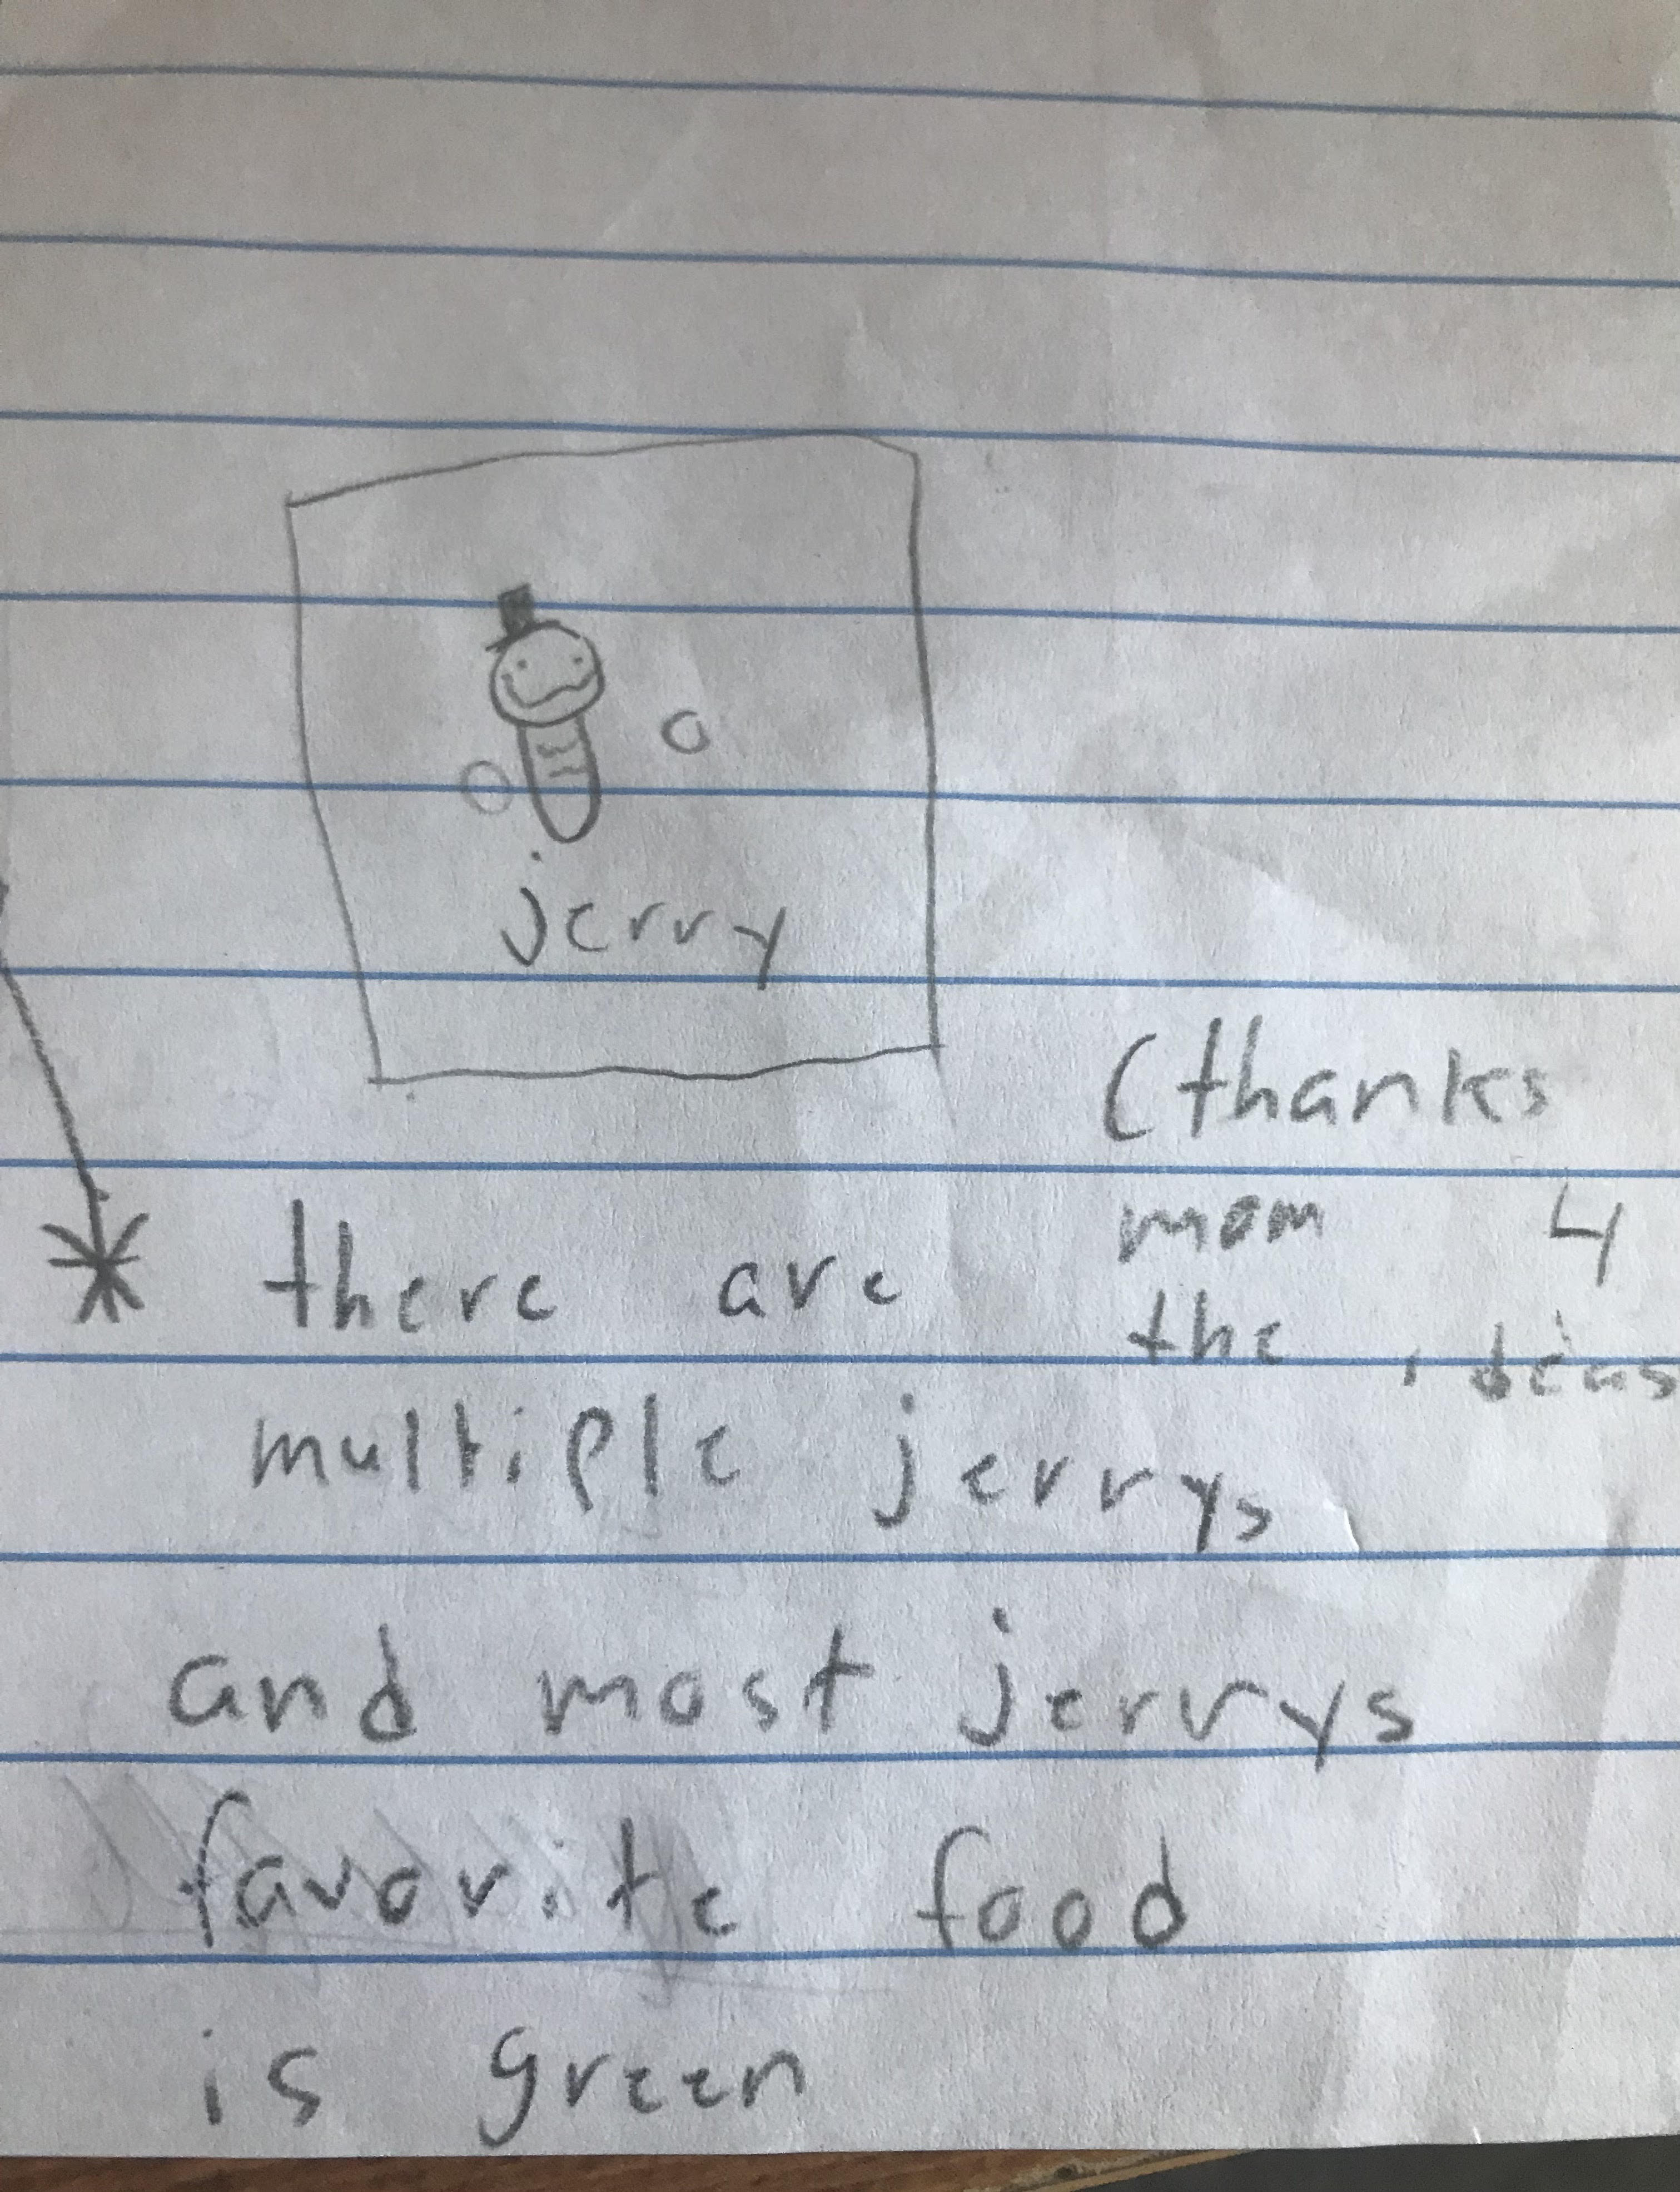 jerry
(thanks
mom 4
the ideas
* there are
multiple jerrys
and most jerrys
favorite food
is green